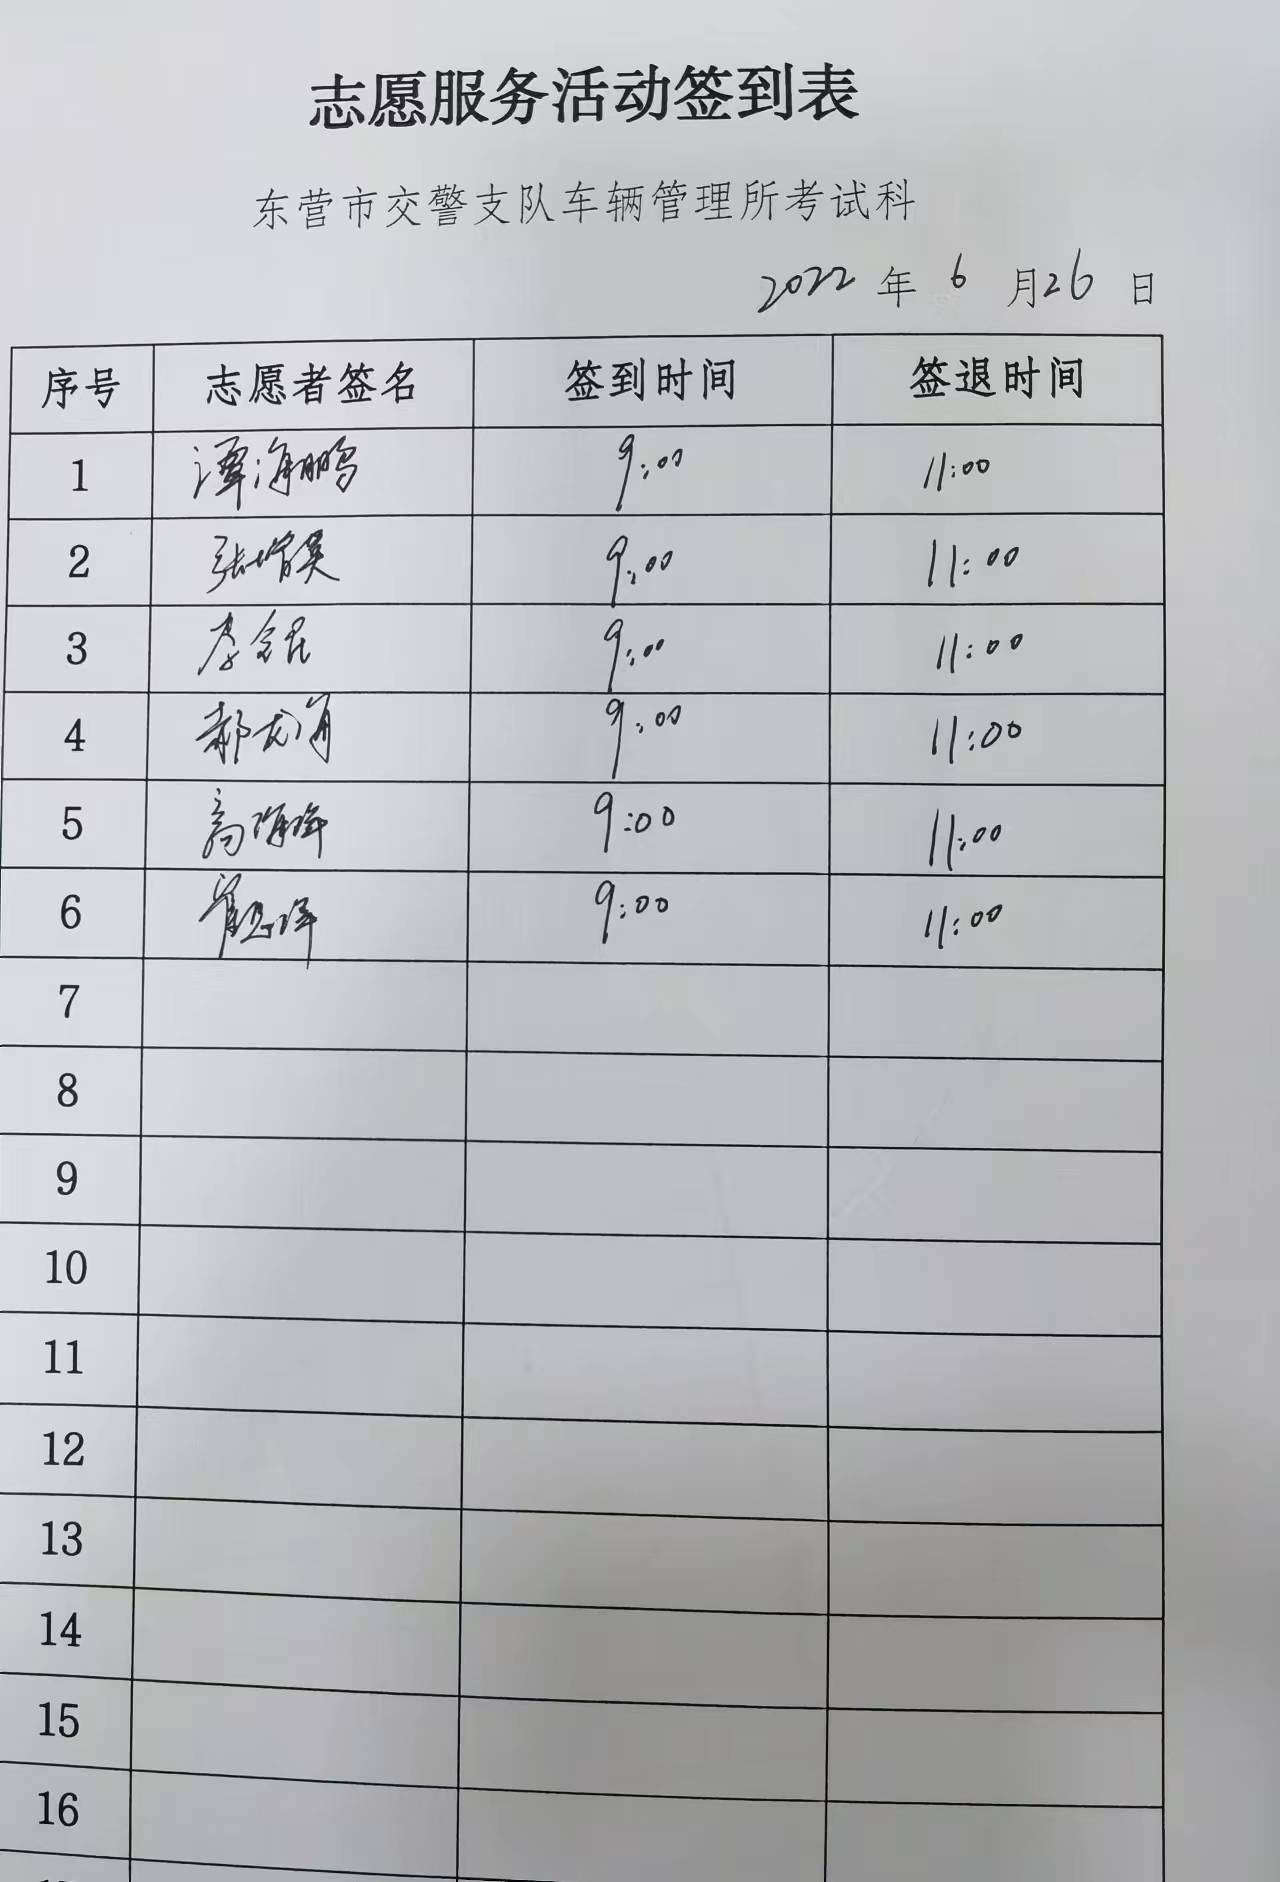 志愿服务活动签到表
东营市交警支队车辆管理所考试科
2022 年 6 月 26 日
序号 志愿者签名 签到时间 签退时间
1 谭海鹏 9:00 11:00
2 张增昊 9:00 11:00
3 李念昆 9:00 11:00
4 郝龙海 9:00 11:00
5 高海峰 9:00 11:00
6 9:00 11:00
7
8
9
10
11
12
13
14
15
16